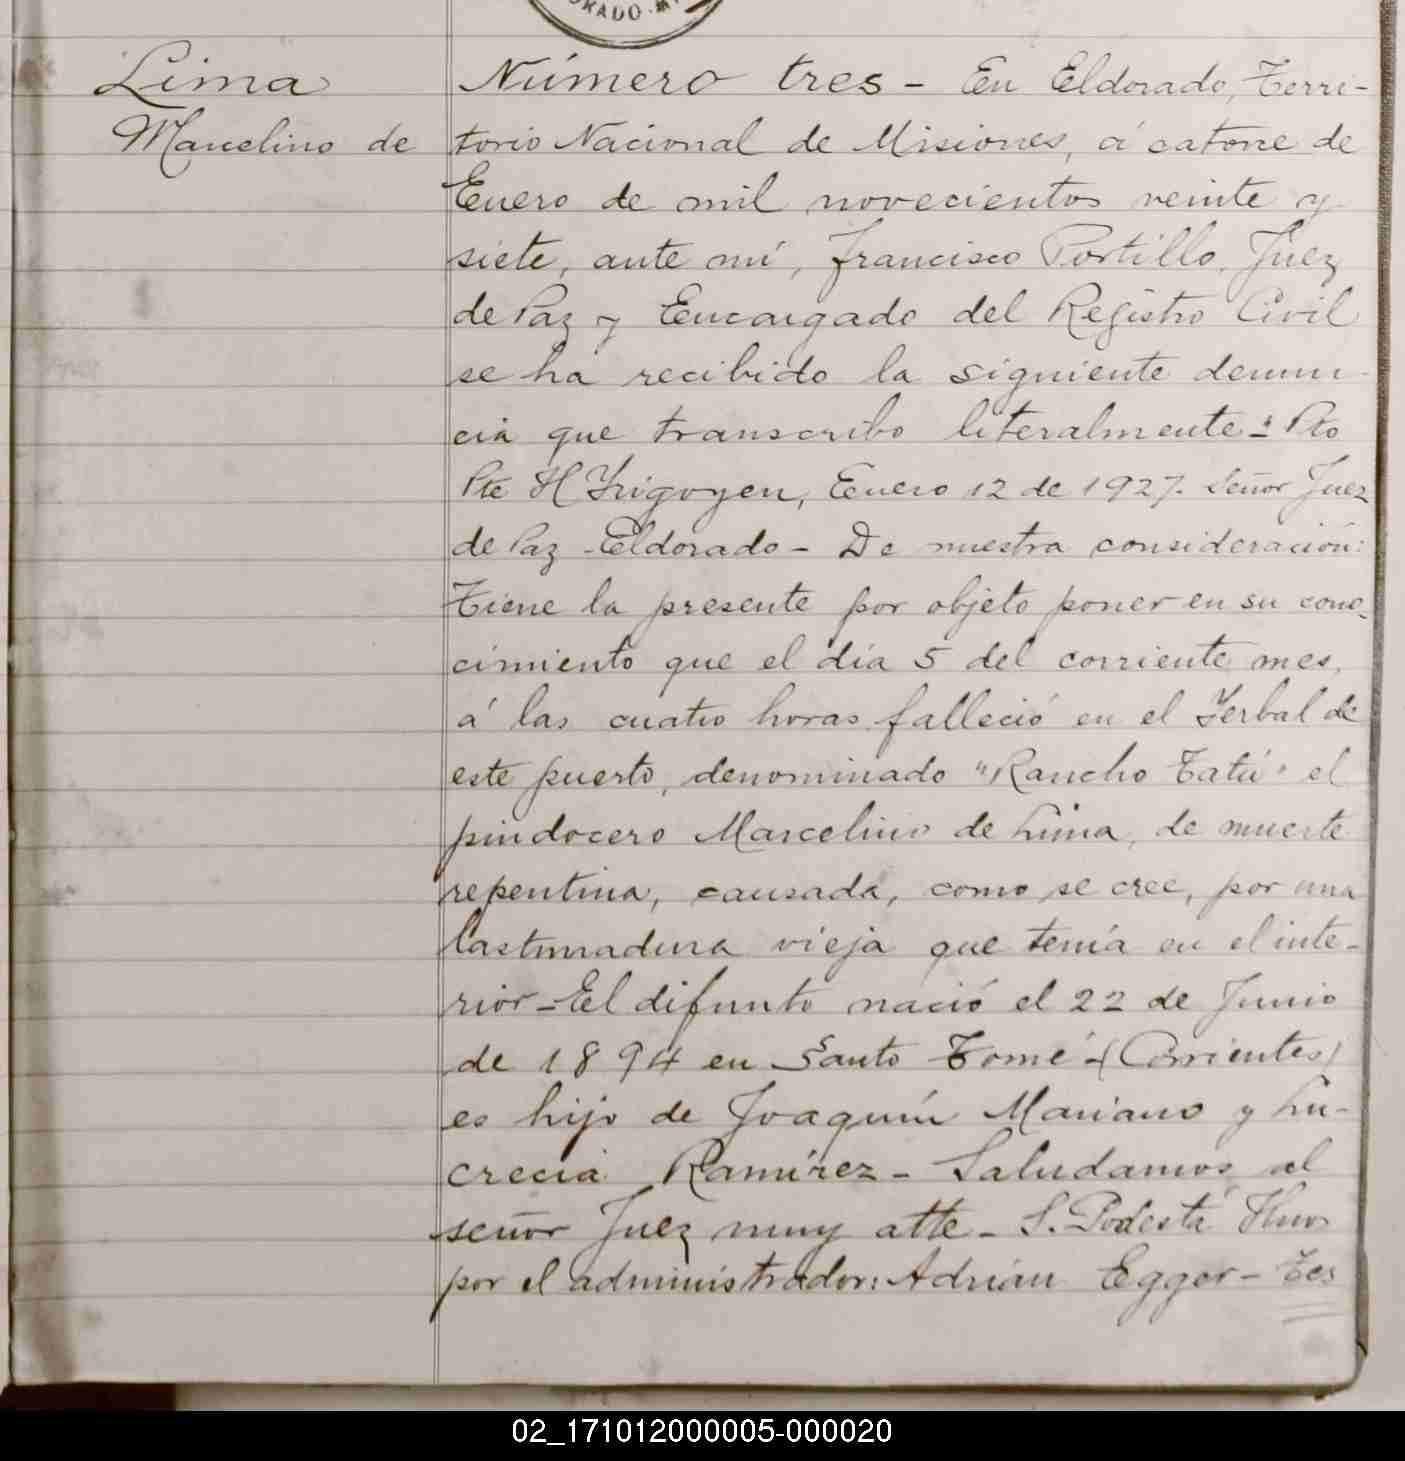 ORADO · M
Lima
Marcelino de
Número tres - En Eldorado, Terri-
torio Nacional de Misiones, á catorce de
Enero de mil novecientos veinte y
siete, ante mí, Francisco Portillo, Juez
de Paz y Encargado del Registro Civil
se ha recibido la siguiente denun-
cia que transcribo literalmente: Pto
Pte H Yrigoyen, Enero 12 de 1927. Señor Juez
de Paz - Eldorado - De nuestra consideración:
Tiene la presente por objeto poner en su cono-
cimiento que el día 5 del corriente mes,
á las cuatro horas falleció en el Yerbal de
este puerto, denominado "Rancho Tatú" el
pindocero Marcelino de Lima, de muerte
repentina, causada, como se cree, por una
lastimadura vieja que tenía en el inte-
rior - El difunto nació el 22 de Junio
de 1894 en Santo Tomé - (Corrientes)
es hijo de Joaquín Mariano y Lu-
crecia Ramírez - Saludamos al
señor Juez muy atte - S. Podestá Hnos
por el administrador: Adrián Egger - Tes
02_171012000005-000020